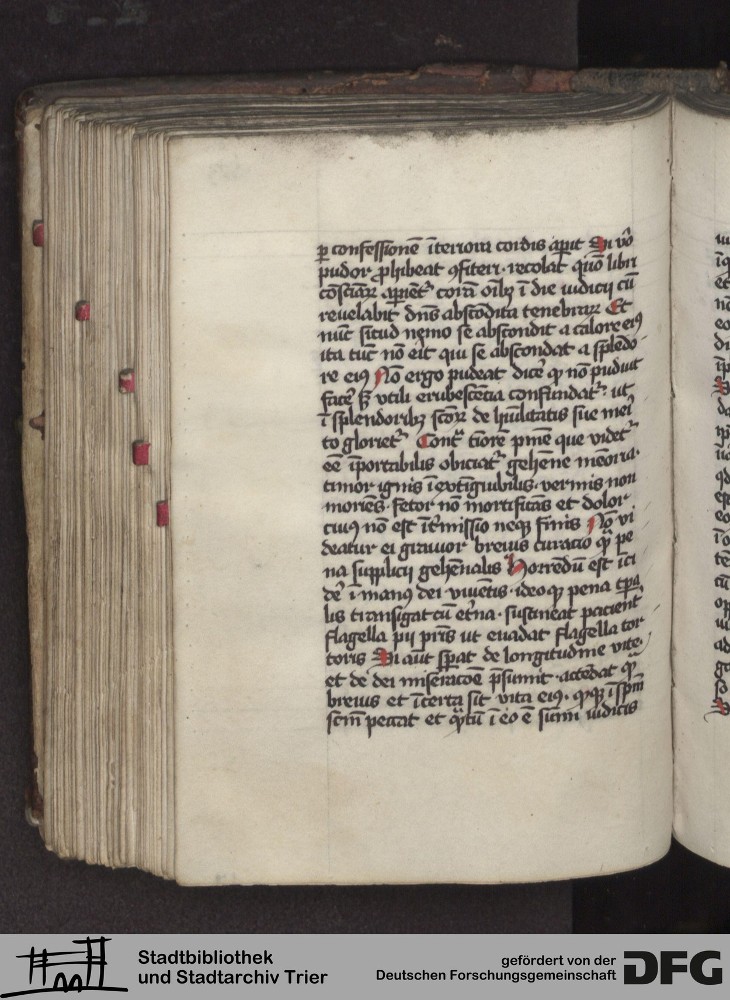 p confessionē īteriora cordis apīt Si vo
pudor phibeat 9fiteri · recolat quō libri
cōsciāꝝ apiēt' corā oībꝫ ī die iudicij cū
reuelabit dn̄s abscōdita tenebraꝝ Et
nūc sicud nemo se abscondit a calore ei9
ita tūc nō eit qui se abscondat a splēdo
re ei9 Nō ergo pudeat dicē q̄ nō puduit
facē sꝫ vtili erubescētia confundat' ut
ī splendoribꝫ scōꝝ de hūilitatis sue mei
to gloriet' Cont' tiōrē pnīe que videt'
eē īportabilis obiciat' gehēne mēoria ·
timor ignis īextīguibilis · vermis non
moriēs · fetor nō mortificās et dolor
cui9 nō est īt'missio neqꝫ finis Nō vi
deatur ei grauior breuis curatio q̄ pe
na supplicij gehēnalis Horrendū est īci
dē ī man9 dei viuētis · ideoqꝫ pena tpa
lis transigat cū et'na · sustineat pacient'
flagella pij pr̄is ut euadat flagella tor
toris Si aūt spat de longitudine vite ·
et de dei miseratōe p̄sumit · attēdat q̄
breuis et īcerta sit vita ei9 · q̄qꝫ ī spm
scm̄ peccat et q̄tū ī eo ē sum̄i iudicis
Stadtbibliothek
und Stadtarchiv Trier
gefördert von der
Deutschen Forschungsgemeinschaft
DFG